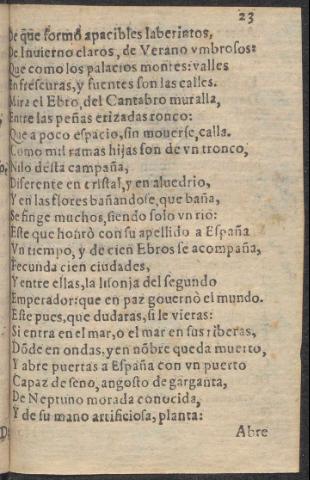 23
De q̃ue formò apacibles laberintos,
De Inuierno claros, de Verano vmbrosos:
Que como los palacios montes: valles
En frescuras, y fuentes son las calles.
Mira el Ebro, del Cantabro muralla,
Entre las peñas erizadas ronco:
Que a poco espacio, sin mouerse, calla.
Como mil ramas hijas son de vn tronco,
Nilo desta campaña,
Diferente en cristal, y en aluedrio,
Y en las flores bañandose, que baña,
Se finge muchos, siendo solo vn rio:
Este que honrò con su apellido a España
Vn tiempo, y de cien Ebros se acompaña,
Fecunda cien ciudades,
Y entre ellas, la lisonja del segundo
Emperador: que en paz gouernò el mundo.
Este pues, que dudaras, si le vieras:
Si entra en el mar, o el mar en sus riberas,
Dõde en ondas, y en nõbre queda muerto,
Y abre puertas a España con vn puerto
Capaz de seno, angosto de garganta,
De Neptuno morada conocida,
Y de su mano artificiosa, planta:
Abre